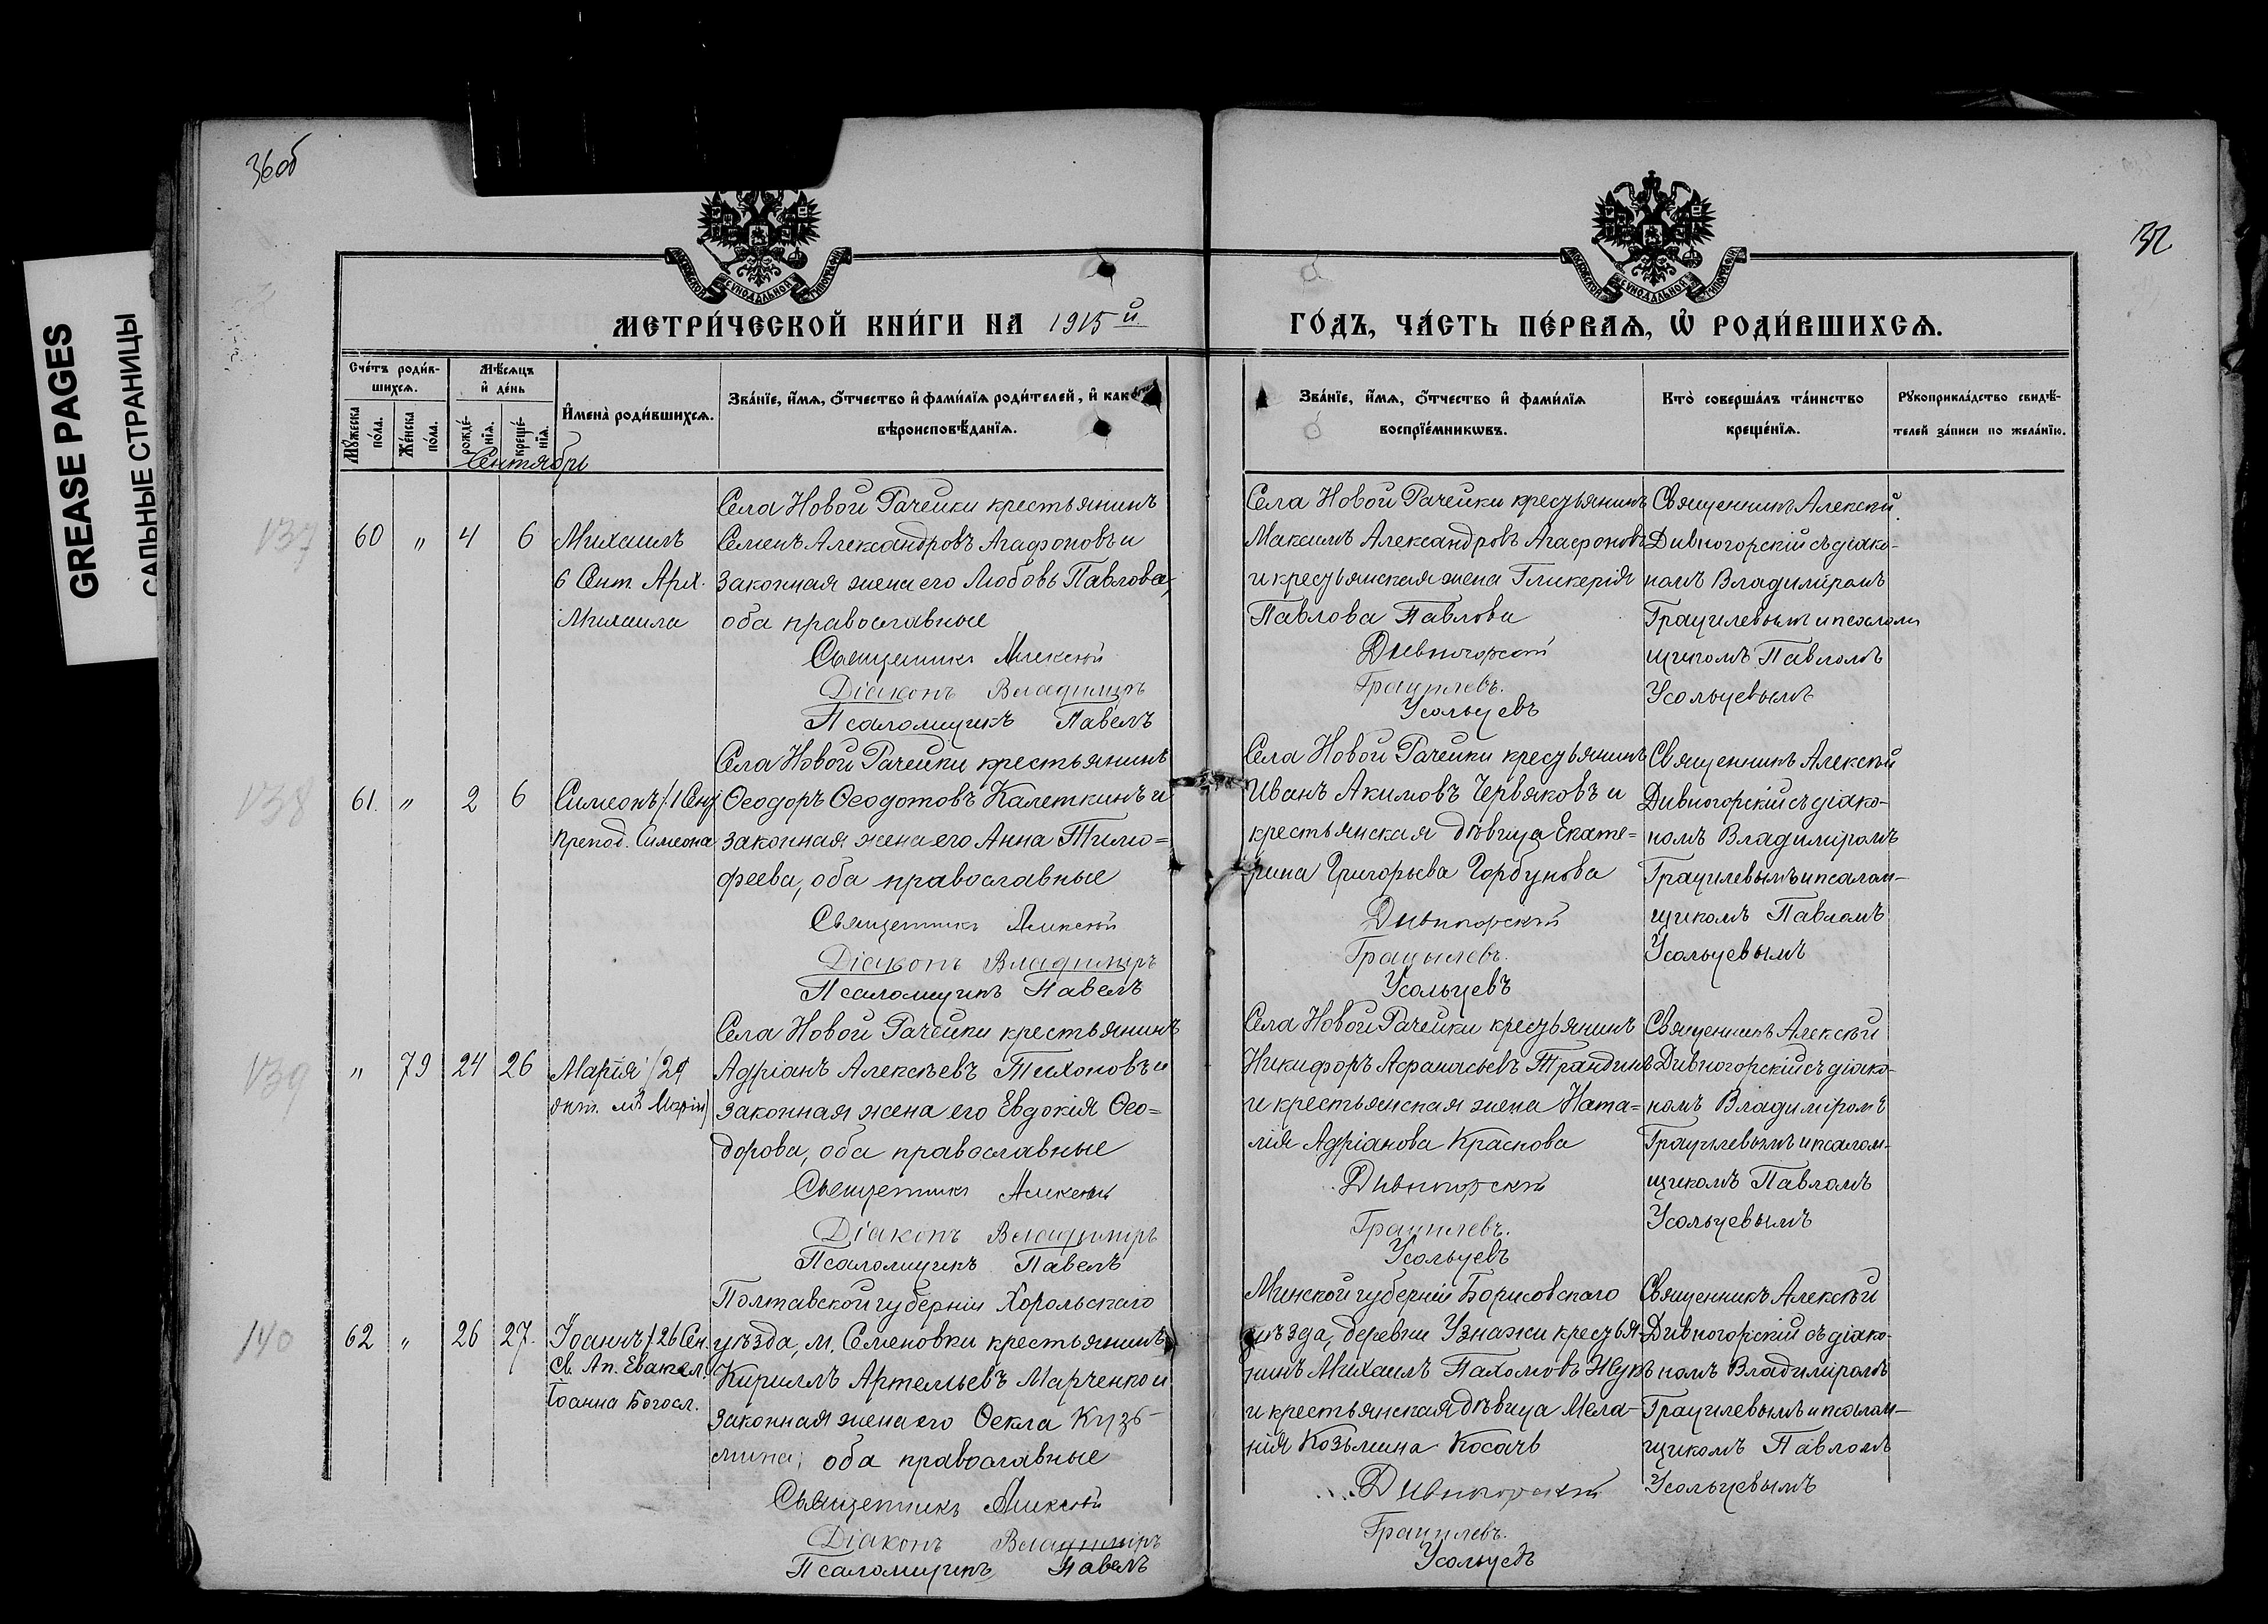 36об
37
GREASE PAGES
САЛЬНЫЕ СТРАНИЦЫ
МОСКОВСКОЙ СѴНОДАЛЬНОЙ ТИПОГРАФІИ
МОСКОВСКОЙ СѴНОДАЛЬНОЙ ТИПОГРАФІИ
МЕТРИ́ЧЕСКОЙ КНИ́ГИ НА 1915 й
ГО́ДЪ, ЧА́СТЬ ПЕ́РВАѦ, Ѡ҆ РОДИ́ВШИХСѦ.
Сче́тъ роди́в-
шихсѧ.
Мꙋ́жеска пола.
Же́нска пола.
Мѣ́сѧцъ
и҆ де́нь
рожде́-
нїѧ.
креще́-
нїѧ.
И҆мена̀ роди́вшихсѧ.
Зва́нїе, и҆́мѧ, ѻ҆́тчество и҆ фами́лїѧ роди́телей, и҆ како́гѡ
вѣроисповѣ́данїѧ.
Зва́нїе, и҆́мѧ, ѻ҆́тчество и҆ фами́лїѧ
воспрїе́мникѡвъ.
Кто̀ соверша́лъ та́инство
креще́нїѧ.
Рꙋкоприкла́дство свидѣ́-
телей за́писи по жела́нїю.
Сентябрь
137
60 " 4 6
Михаилъ
6 Сент. Арх.
Михаила
Села Новой Рачейки крестьянинъ
Семенъ Александровъ Агафоновъ и
законная жена его Любовь Павлова,
оба православные
Священникъ Алексій
Діаконъ Владиміръ
Псаломщикъ Павелъ
Села Новой Рачейки крестьянинъ
Максимъ Александровъ Агафоновъ
и крестьянская жена Гликерія
Павлова Павлова
Дивногорскій
Грацилевъ.
Усольцевъ
Священникъ Алексій
Дивногорскій съ діако-
номъ Владиміромъ
Грацилевымъ и псалом
щикомъ Павломъ
Усольцевымъ
138
61. " 2 6
Симеонъ /1 Сент
препод. Симеона
Села Новой Рачейки крестьянинъ
Ѳеодоръ Ѳеодотовъ Калеткинъ и
законная жена его Анна Тимо=
феева, оба православные
Священникъ Алексій
Діаконъ Владиміръ
Псаломщикъ Павелъ
Села Новой Рачейки крестьянинъ
Иванъ Акимовъ Червяковъ и
крестьянская дѣвица Екате=
рина Григорьева Горбунова
Дивногорскій
Грацилевъ.
Усольцевъ
Священникъ Алексѣй
Дивногорскій съ діако-
номъ Владиміромъ
Грацилевымъ и псалом-
щикомъ Павломъ
Усольцевымъ
139
" 79 24 26
Марія /29
окт. мц Маріи)
Села Новой Рачейки крестьянинъ
Адріанъ Алексѣевъ Тихоновъ и
законная жена его Евдокія Ѳео=
дорова, оба православные
Священникъ Алексій
Діаконъ Владиміръ
Псаломщикъ Павелъ
Села Новой Рачейки крестьянинъ
Никифоръ Афанасьевъ Трандинъ
и крестьянская жена Ната=
лія Адріанова Краснова
Дивногорскій
Грацилевъ.
Усольцевъ
Священникъ Алексѣй
Дивногорскій съ діако-
номъ Владиміромъ
Грацилевымъ и псалом-
щикомъ Павломъ
Усольцевымъ
140
62 " 26 27.
Іоаннъ /26 Сен.
Св. Ап. Евангел.
Іоанна Богосл.
Полтавской губерніи Хорольскаго
уѣзда, м. Семеновки крестьянинъ
Кириллъ Артемьевъ Марченко и
законная жена его Ѳекла Кузь-
мина; оба православные
Священникъ Алексій
Діаконъ Владиміръ
Псаломщикъ Павелъ
Минской губерніи Борисовскаго
уѣзда, деревни Узнажи крестья-
нинъ Михаилъ Пахомовъ Жукъ
и крестьянская дѣвица Мела-
нія Козьмина Косачъ
Дивногорскій
Грацилевъ.
Усольцевъ
Священникъ Алексѣй
Дивногорскій съ діако-
номъ Владиміромъ
Грацилевымъ и псалом-
щикомъ Павломъ
Усольцевымъ